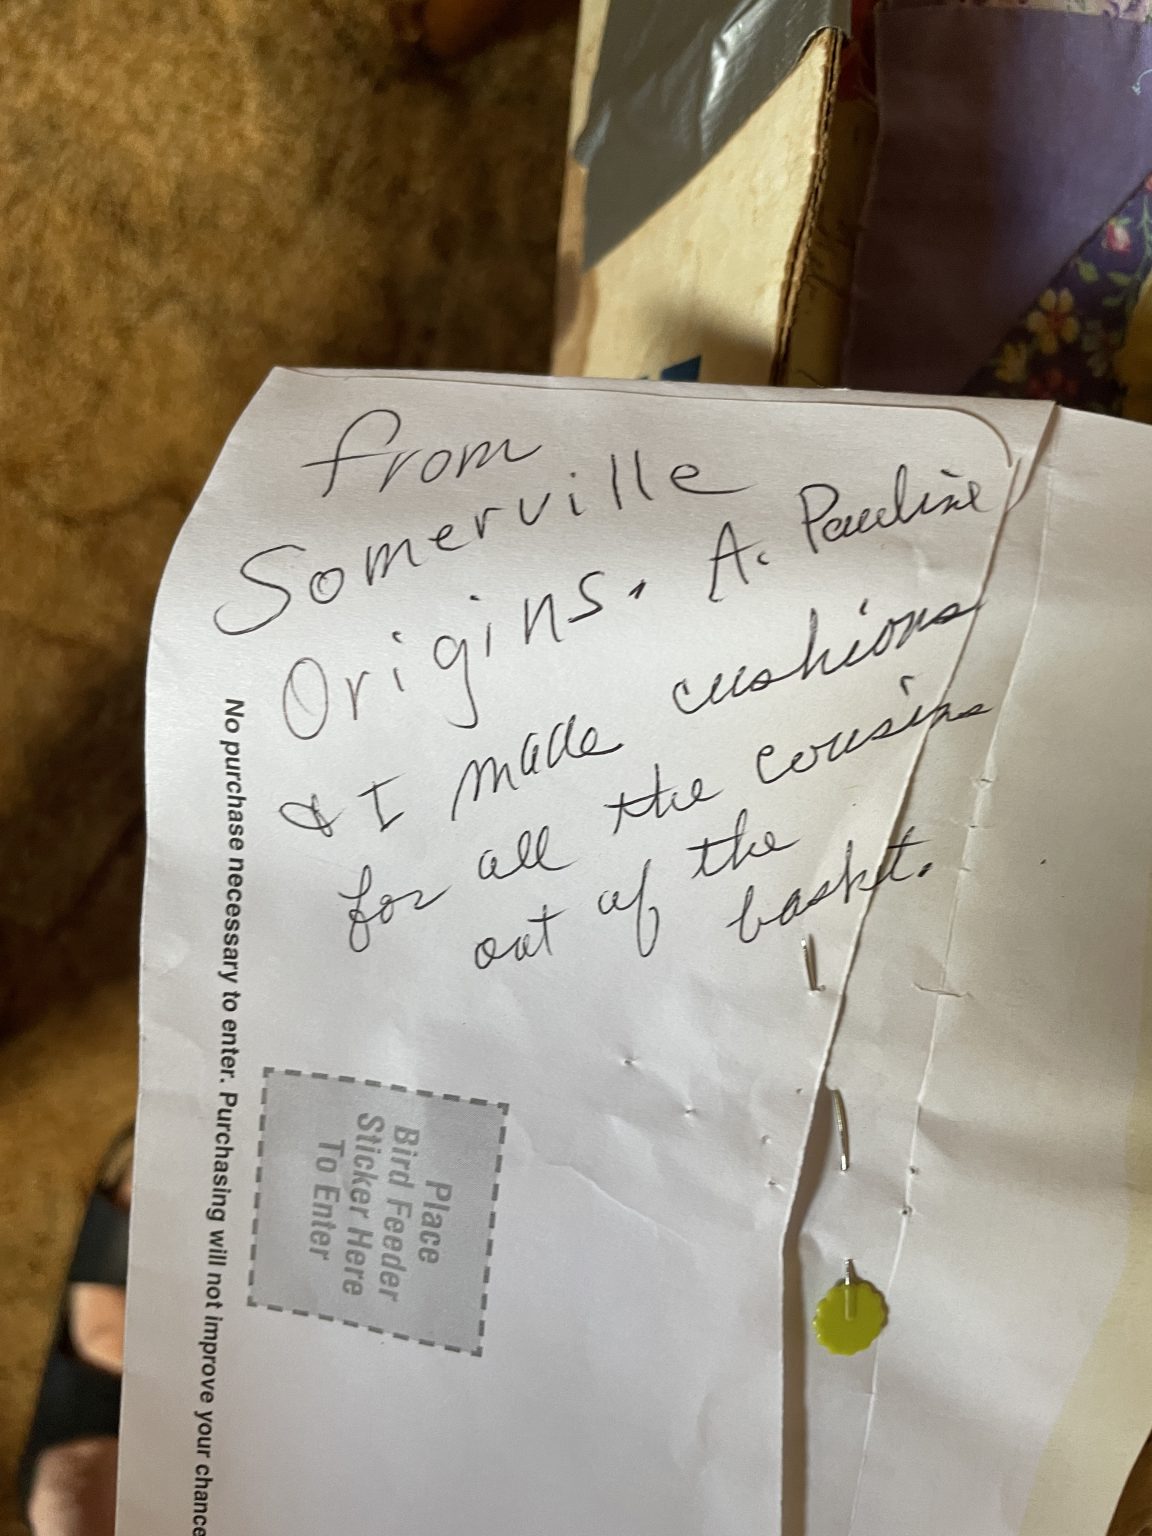 from
Somerville
Origins. A. Pauline
& I made cushions
for all the cousins
out of the
basket.
No purchase necessary to enter. Purchasing will not improve your chance
Place
Bird Feeder
Sticker Here
To Enter